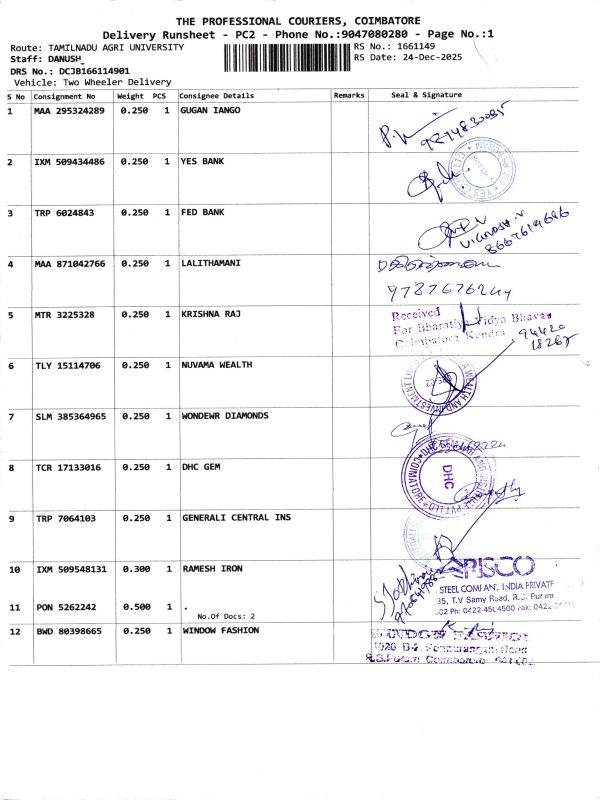 THE PROFESSIONAL COURIERS, COIMBATORE
Delivery Runsheet - PC2 - Phone No.:9047080280 - Page No.:1
Route: TAMILNADU AGRI UNIVERSITY RS No.: 1661149
Staff: DANUSH RS Date: 24-Dec-2025
DRS No.: DCJB166114901
Vehicle: Two Wheeler Delivery
S No Consignment No Weight PCS Consignee Details Remarks Seal & Signature
1 MAA 295324289 0.250 1 GUGAN IANGO
2 IXM 509434486 0.250 1 YES BANK
3 TRP 6024843 0.250 1 FED BANK
8667619696
4 MAA 871042766 0.250 1 LALITHAMANI
9787676244
5 MTR 3225328 0.250 1 KRISHNA RAJ
Received
For Bharatiya Vidya Bhavan
Coimbatore Kendra
94420
18267
6 TLY 15114706 0.250 1 NUVAMA WEALTH
WEALTH AND INVESTMENT
7 SLM 385364965 0.250 1 WONDEWR DIAMONDS
8 TCR 17133016 0.250 1 DHC GEM
DHC
COIMBATORE
9 TRP 7064103 0.250 1 GENERALI CENTRAL INS
10 IXM 509548131 0.300 1 RAMESH IRON
ARISCO
STEEL COMPANY INDIA PRIVATE
35, T.V Samy Road, R.S. Puram
11 PON 5262242 0.500 1 .
No.Of Docs: 2
12 BWD 80398665 0.250 1 WINDOW FASHION
WINDOW FASHION
R.S.Puram Coimbatore